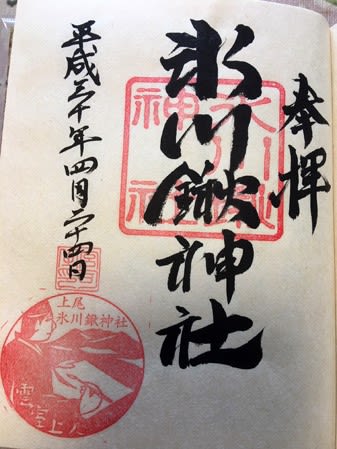 奉拝
氷川鍬神社
氷川鍬神社
平成三十年四月二十四日
上尾
氷川鍬神社
雲室上人